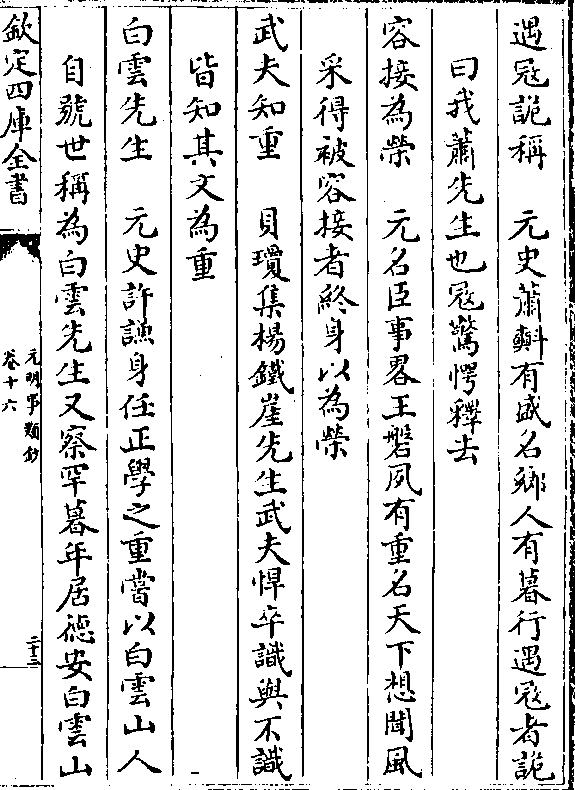 遇冦詭稱　元史蕭𣂏有盛名鄉人有暮行遇冦者詭
曰我蕭先生也冦驚愕釋去
容接為榮　元名臣事畧王磐夙有重名天下想聞風
采得被容接者終身以為榮
武夫知重　貝瓊集楊鐵崖先生武夫悍卒識與不識
皆知其文為重
白雲先生　元史許謙身任正學之重嘗以白雲山人
自號世稱為白雲先生又察罕暮年居德安白雲山
欽定四庫全書
元明事類鈔
卷十六
二十三